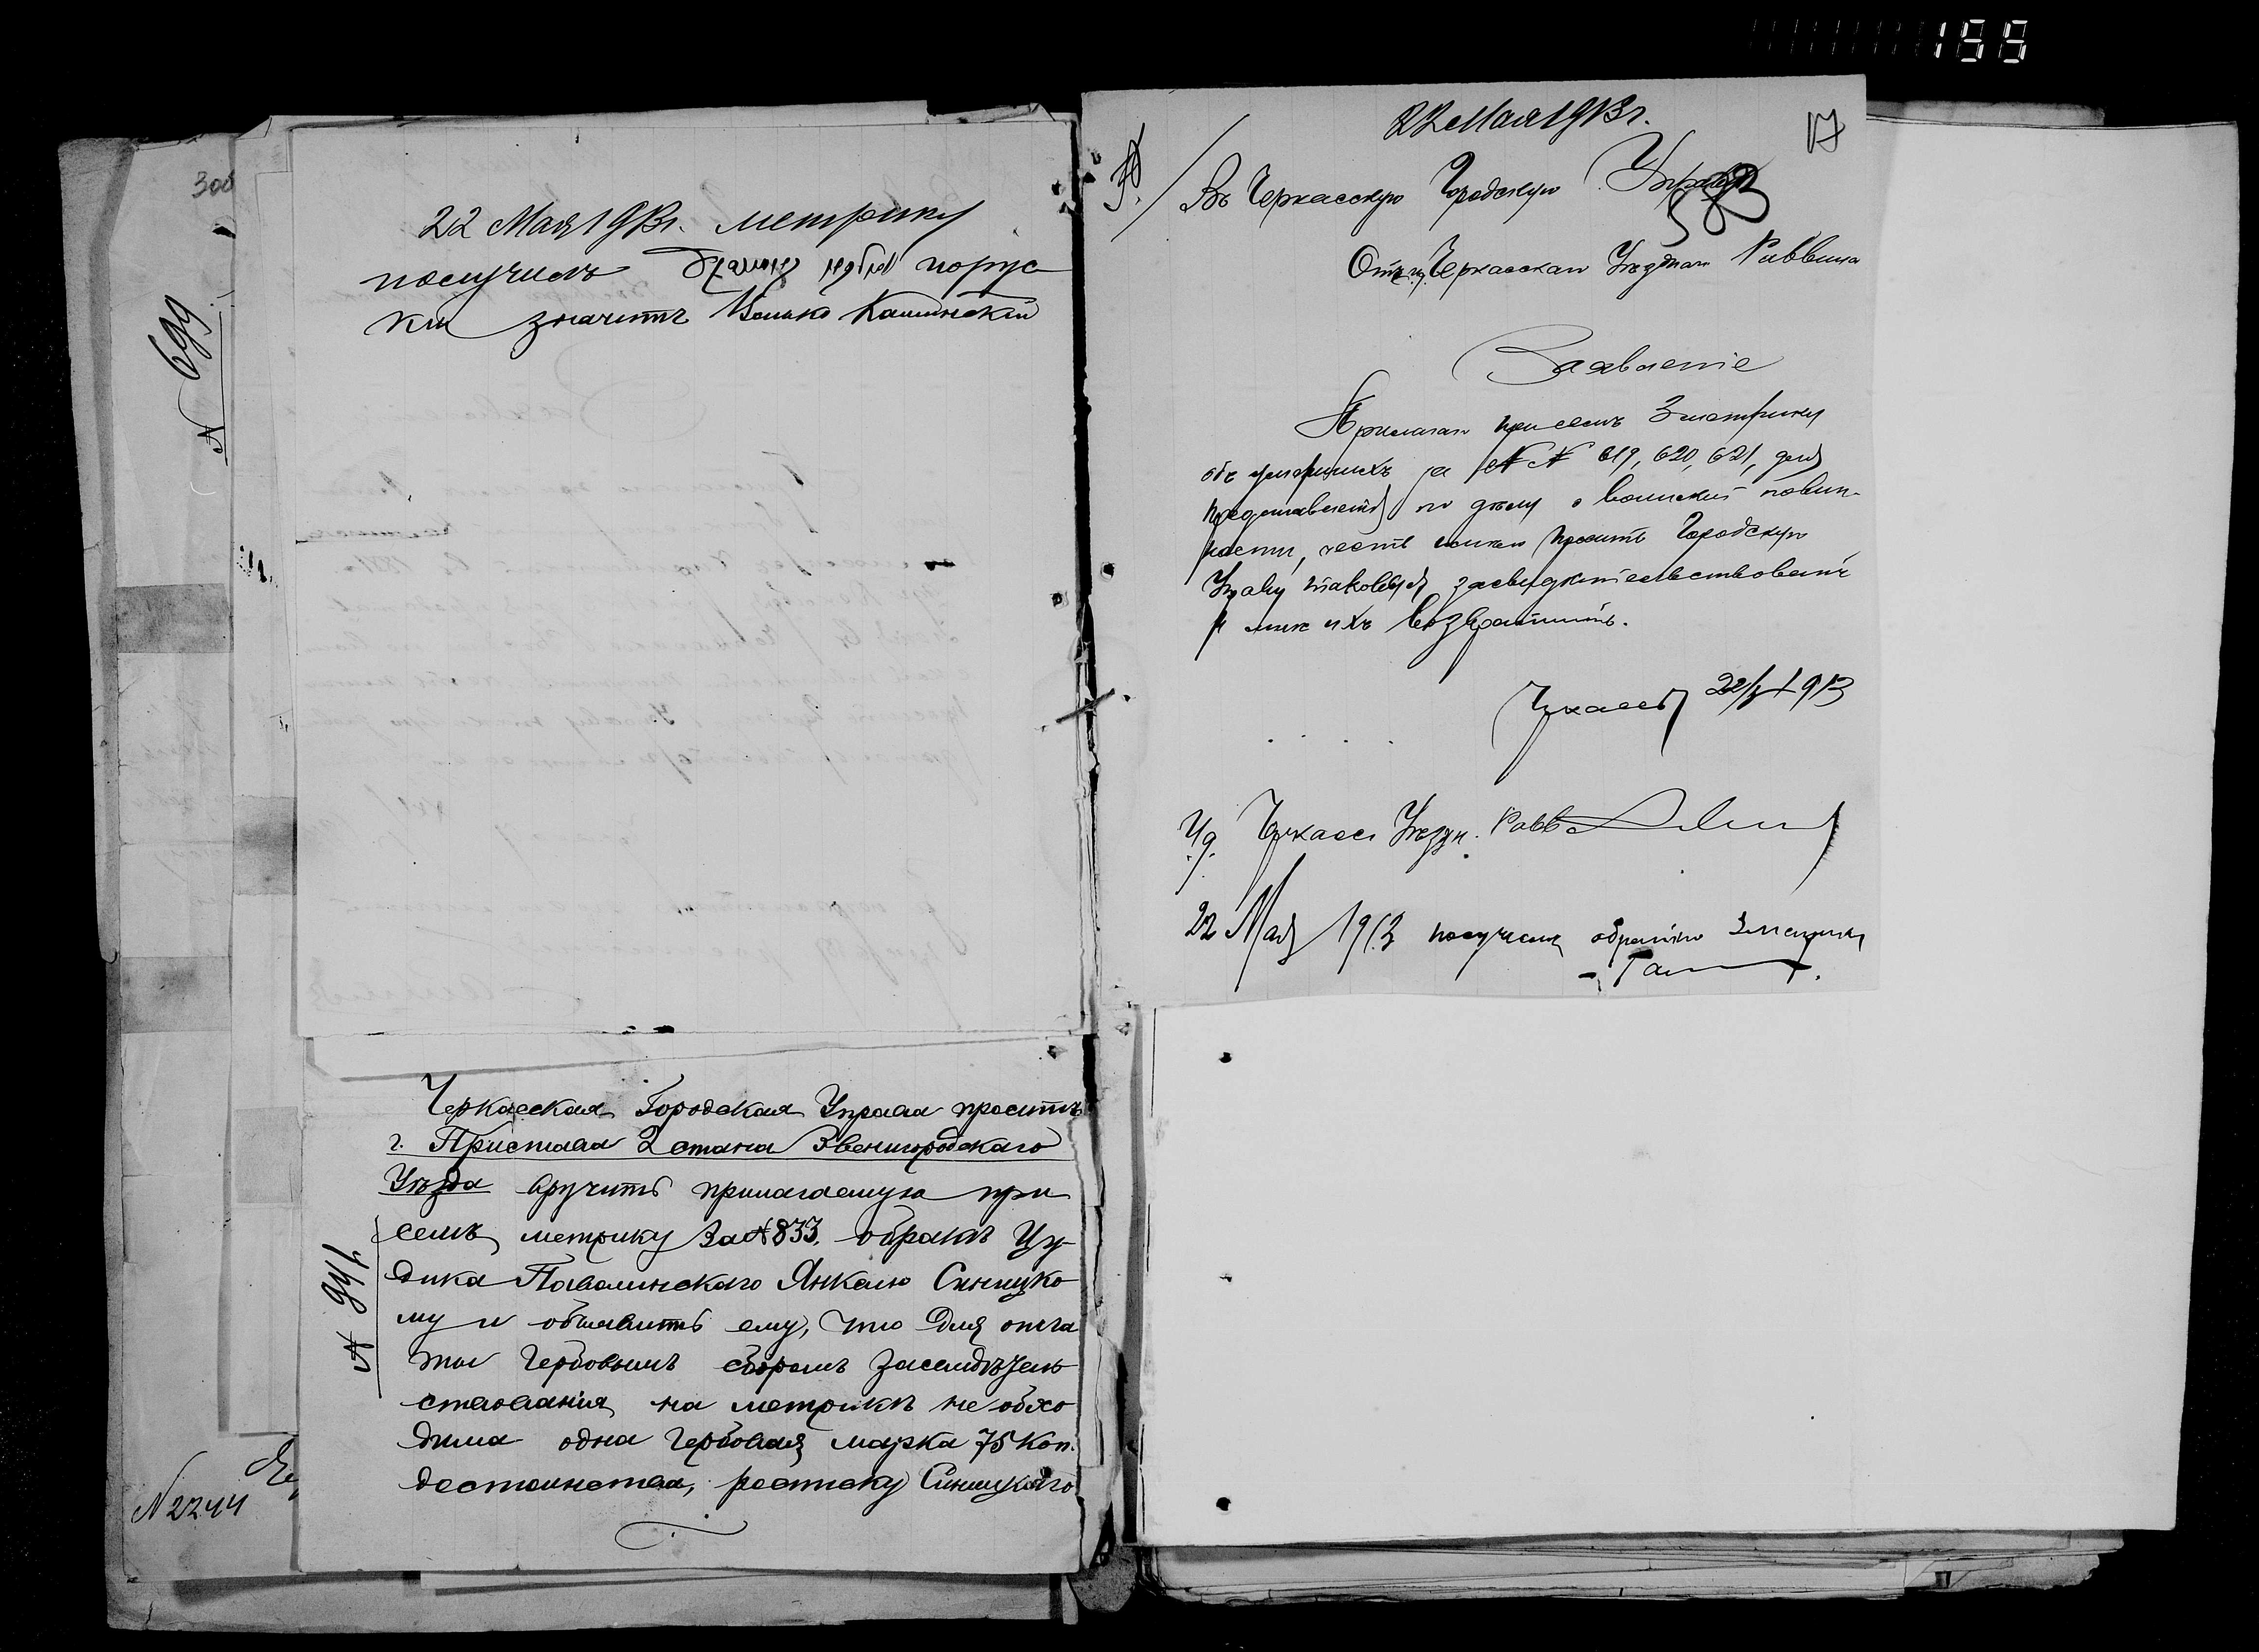 155
300
22 Мая 1913 г. метрику
получилъ порус
ки значитъ Волько Каминскій
N 699
Черкасская Городская Управа проситъ
г. Пристава 2 стана Звенигородскаго
Уѣзда вручить прилагаемую при
семъ метрику за № 833. о бракѣ Иу-
дика Паволинскаго Янкелю Синицко
му и объявить ему, что для опла
ты Гербовымъ сборомъ засвидѣтель
ствованія на метрикѣ необхо
дима одна Гербовая марка 75 коп.
достоинства, росписку Синицкаго
№ 941
N 2244
22 Мая 1913 г.
17
Въ Черкасскую Городскую Управу
Отъ и.д. Черкасскаго Уѣзднаго Раввина
Заявленіе
Прилагая при семъ 3 метрики
объ умершихъ за №№ 619, 620, 621, для
представленія по дѣлу о воинской повин-
ности, честь имѣю просить Городскую
Управу таковыя засвидѣтельствовать
и мнѣ ихъ возвратить.
Черкассы 22/V 1913
И.д. Черкасс. Уѣздн. Равв
22 Мая 1913 получилъ обратно 3 метрики